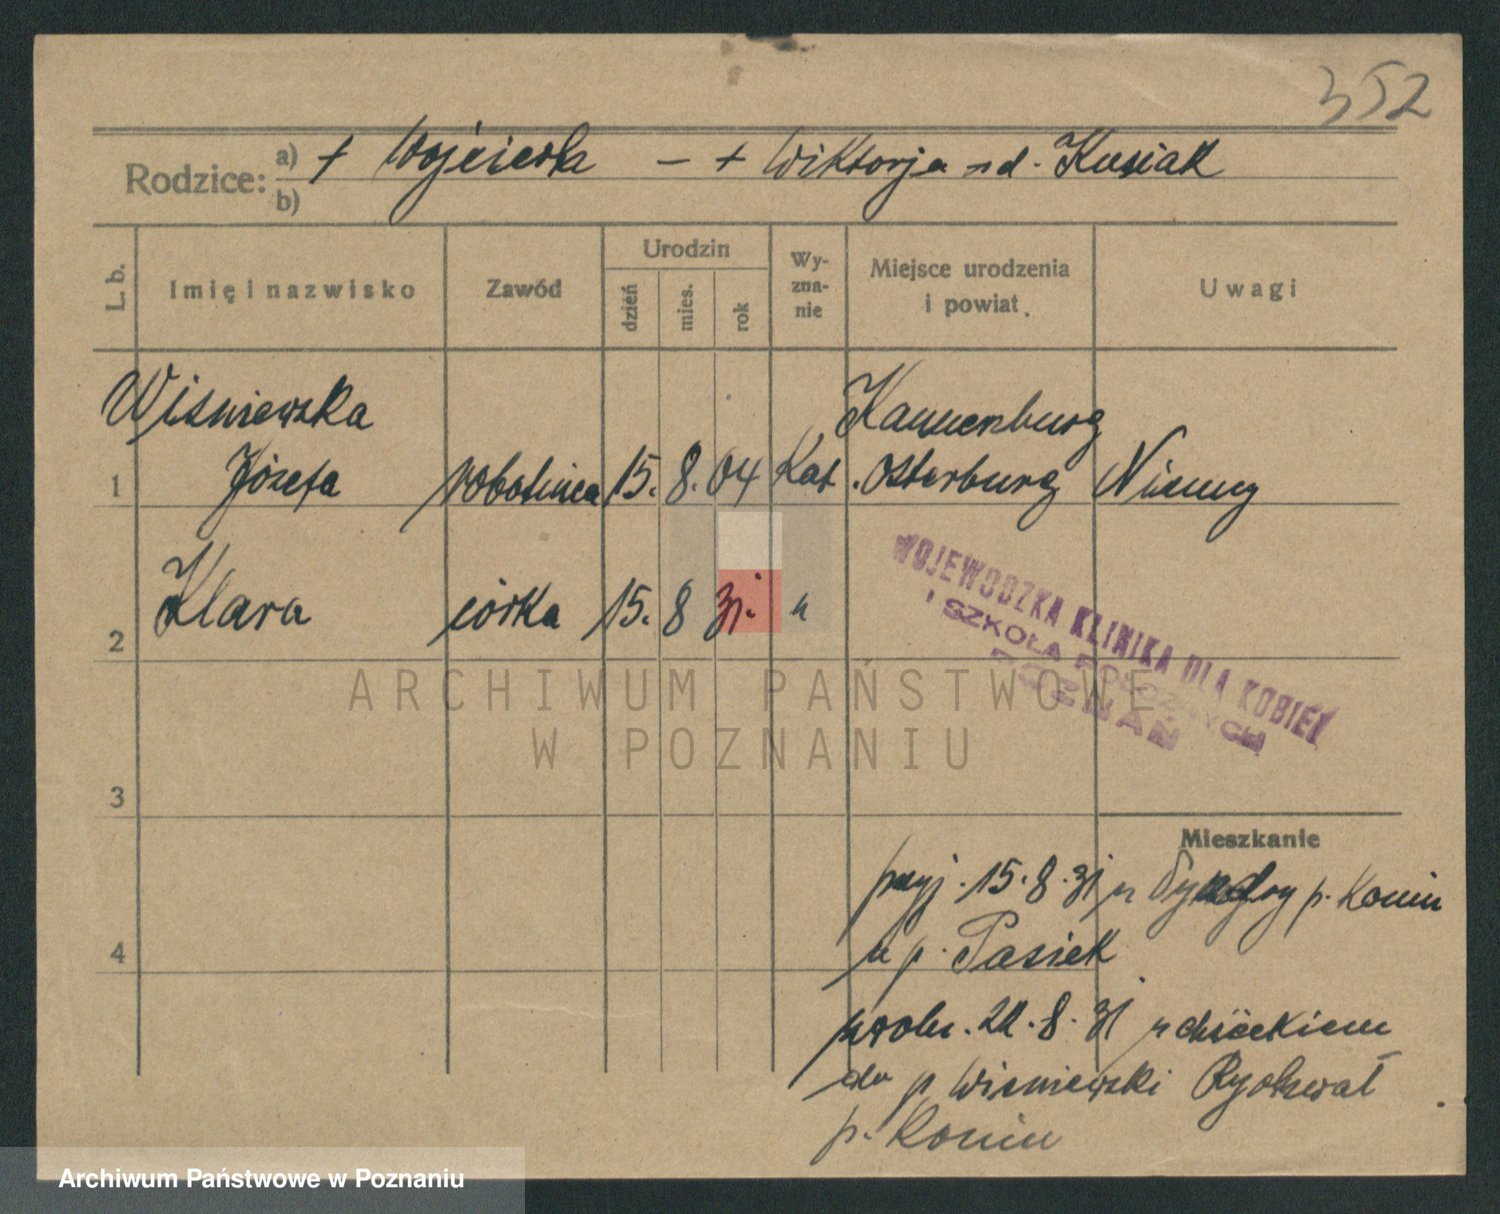 352
Rodzice: a) + Wojciecha — + Wiktorja z d. Kusiak
b)
L. b.
Imię i nazwisko
Zawód
Urodzin
dzień
mies.
rok
Wy-
zna-
nie
Miejsce urodzenia
i powiat.
Uwagi
Wiśniewska Kannenburg
1 Józefa robotnica 15. 8. 04 Kat. Osterburg Niemcy
2 Klara córka 15. 8 31. "
WOJEWÓDZKA KLINIKA DLA KOBIET
I SZKOŁA POŁOŻNYCH
POZNAŃ
ARCHIWUM PAŃSTWOWE
W POZNANIU
3
Mieszkanie
przyj. 15. 8. 31 z p. Konin
4 u p. Pasiek
22. 8. 31 z dzieckiem
do p Wiśniewski Rychwał
p. Konin
Archiwum Państwowe w Poznaniu